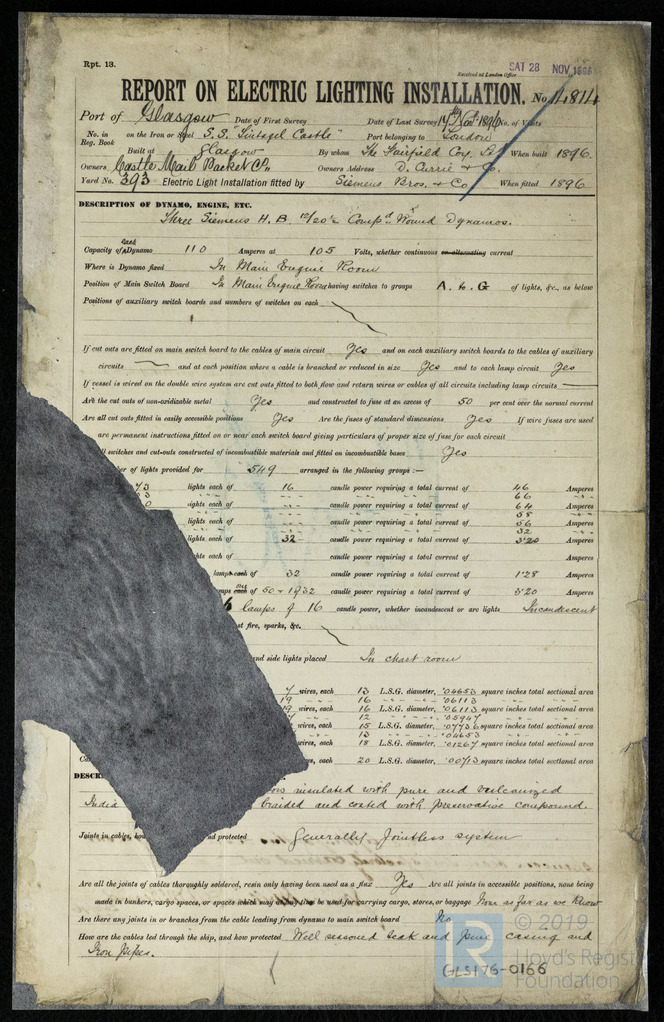 Rpt. 13.
SAT 28 NOV 1896
Received at London Office
REPORT ON ELECTRIC LIGHTING INSTALLATION. No. 14814
Port of Glasgow Date of First Survey Date of Last Survey Nov 1896 No. of Visits
No. in Reg. Book on the Iron or Steel S.S. "Tintagel Castle" Port belonging to London
Built at Glasgow By whom The Fairfield Coy. Ld When built 1896.
Owners Castle Mail Packet Co. Owners Address D. Currie & Co.
Yard No. 393 Electric Light Installation fitted by Siemens Bros. & Co When fitted 1896
DESCRIPTION OF DYNAMO, ENGINE, ETC.
Three Siemens H.B. Compd Wound Dynamos.
Capacity of each Dynamo 110 Amperes at 105 Volts, whether continuous or alternating current
Where is Dynamo fixed In Main Engine Room
Position of Main Switch Board In Main Engine Room having switches to groups A. to G of lights, &c., as below
Positions of auxiliary switch boards and numbers of switches on each
If cut outs are fitted on main switch board to the cables of main circuit Yes and on each auxiliary switch boards to the cables of auxiliary
circuits and at each position where a cable is branched or reduced in size Yes and to each lamp circuit Yes
If vessel is wired on the double wire system are cut outs fitted to both flow and return wires or cables of all circuits including lamp circuits
Are the cut outs of non-oxidizable metal Yes and constructed to fuse at an excess of 50 per cent over the normal current
Are all cut outs fitted in easily accessible positions Yes Are the fuses of standard dimensions Yes If wire fuses are used
are permanent instructions fitted on or near each switch board giving particulars of proper size of fuse for each circuit
switches and cut-outs constructed of incombustible materials and fitted on incombustible bases Yes
of lights provided for 549 arranged in the following groups :—
73 lights each of 16 candle power requiring a total current of 46 Amperes
66
lights each of candle power requiring a total current of 64 Amperes
58
lights each of candle power requiring a total current of 56 Amperes
32
lights each of 32 candle power requiring a total current of 3.20 Amperes
lights each of candle power requiring a total current of Amperes
lamp each of 32 candle power requiring a total current of 1.28 Amperes
of 50 - 1932 candle power requiring a total current of 3.20 Amperes
lamps of 16 candle power, whether incandescent or arc lights Incandescent
fire, sparks, &c.
and side lights placed In chart room
7 wires, each 13 L.S.G. diameter, .04653 square inches total sectional area
19 16 .06113
19 wires, each 16 L.S.G. diameter, .06113 square inches total sectional area
12 .05947
wires, each 15 L.S.G. diameter, .07736 square inches total sectional area
13 .04653
wires, each 18 L.S.G. diameter, .01267 square inches total sectional area
wires, each 20 L.S.G. diameter, .00713 square inches total sectional area
insulated with pure and vulcanized
India braided and coated with preservative compound.
Joints in cables, protected Generally Jointless system
Are all the joints of cables thoroughly soldered, resin only having been used as a flux Yes Are all joints in accessible positions, none being
made in bunkers, cargo spaces, or spaces which may at any time be used for carrying cargo, stores, or baggage None as far as we know
Are there any joints in or branches from the cable leading from dynamo to main switch board No
How are the cables led through the ship, and how protected Well seasoned teak and pine casing and
Iron Pipes.
GLS176-0166
© 2019
Lloyd's Register
Foundation